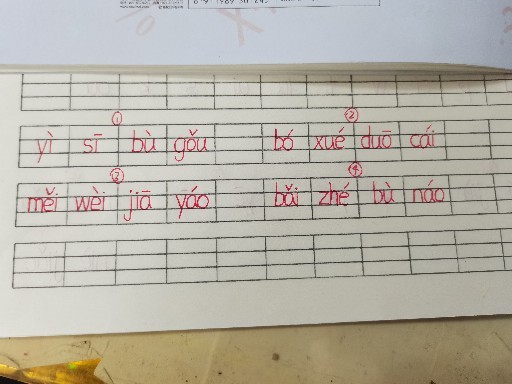 ① ②
yì sī bù gǒu bó xué duō cái
③ ④
měi wèi jiā yáo bǎi zhé bù náo